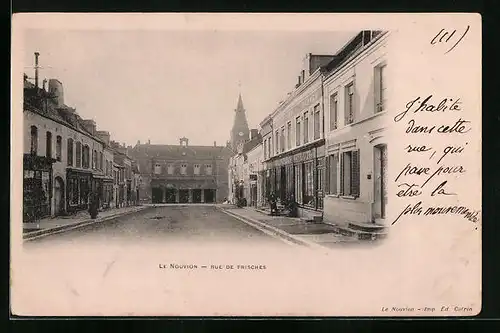 (11)
J'habite
dans cette
rue, qui
passe pour
être la
plus mouvementée
LE NOUVION — RUE DE FRISCHES
Le Nouvion - Imp. Ed. Catrin